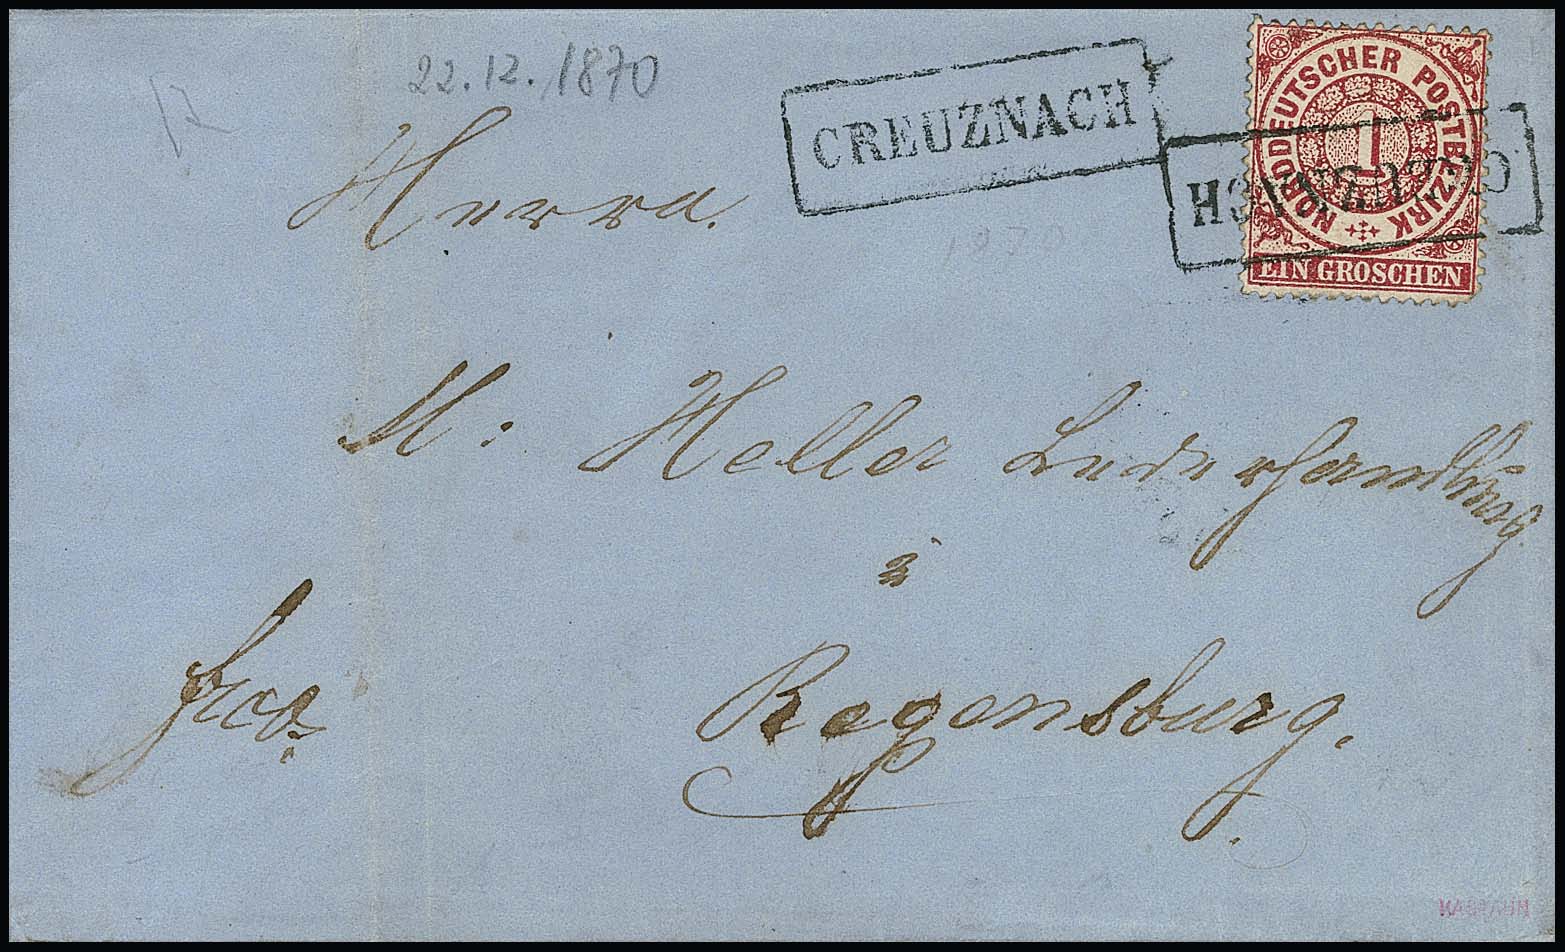 22.12.1870
CREUZNACH
NORDDEUTSCHER POSTBEZIRK
1
CREUZNACH
EIN GROSCHEN
Herrn
M: Heller Lederhandlung
in
Regensburg.
frco.